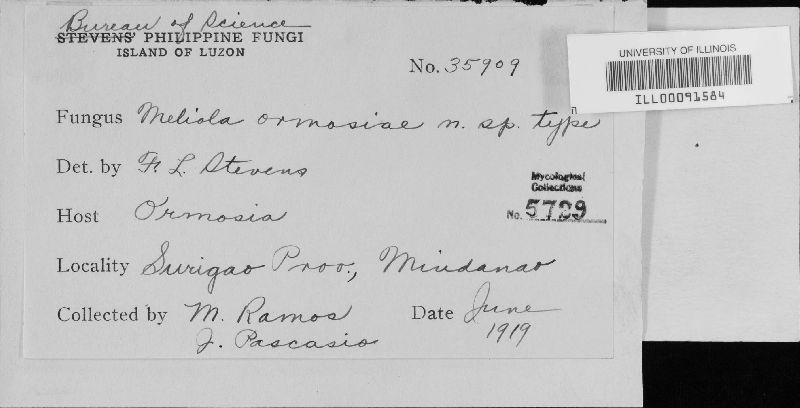 Bureau of Science
STEVENS' PHILIPPINE FUNGI
ISLAND OF LUZON
No. 35909
UNIVERSITY OF ILLINOIS
ILL00091584
Fungus Meliola ormosiae n. sp. type
Det. by F. L. Stevens
Mycological
Collections
No. 5729
Host Ormosia
Locality Surigao Prov., Mindanao
Collected by M. Ramos
J. Pascasio
Date June
1919